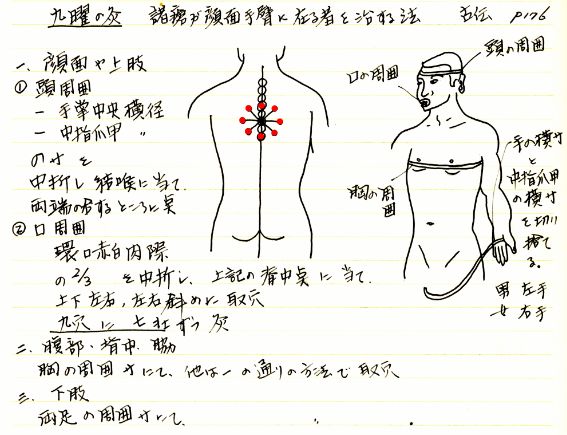 九曜の灸 諸瘡が顔面手臂に在る者を治する法 古伝 P176
一、顔面や上肢
① 頭周囲
− 手掌中央横径
− 中指爪甲 〃
の寸を
中折し結喉に当て、
両端の合するところに点
② 口周囲
環口赤白肉際
の2/3 を中折し、上記の脊中点に当て、
上下左右、左右斜めに取穴
九穴に七壮ずつ灸
二、腹部・背中・脇
胸の周囲寸にて、他は一の通りの方法で取穴
三、下肢
両足の周囲寸にて、
頭の周囲
口の周囲
胸の周囲
手の横寸
と
中指爪甲
の横寸
を切り
捨てる。
男 左手
女 右手